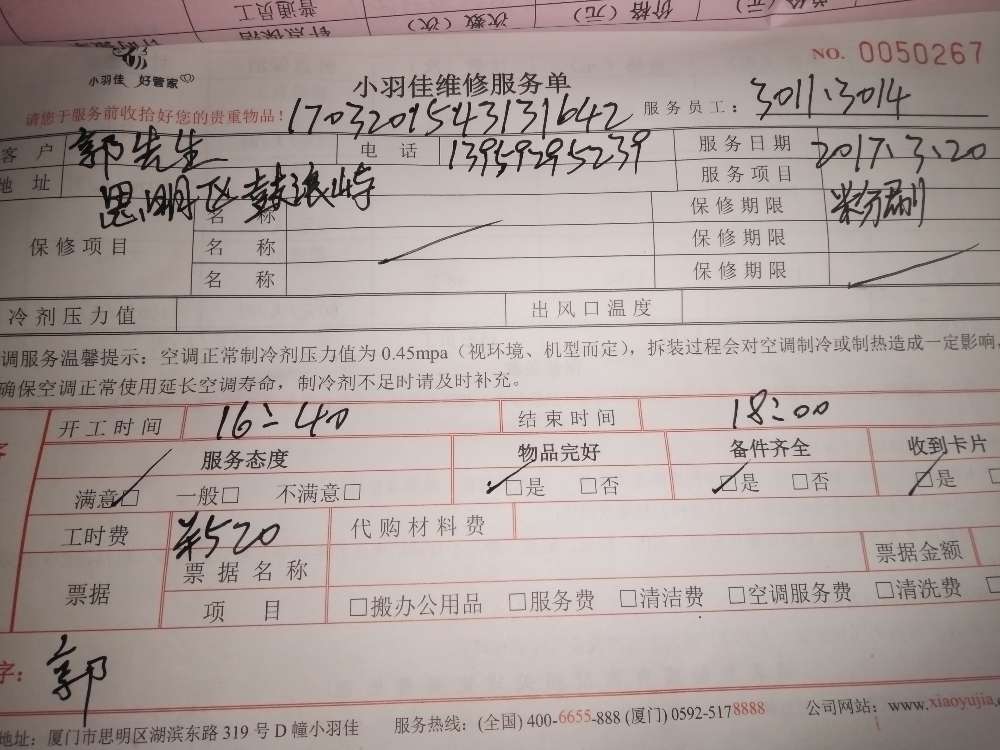 普通员工
次数（次）
价格（元）
小羽佳 好管家
小羽佳维修服务单
NO. 0050267
请您于服务前收拾好您的贵重物品！
1703201543131642
服务员工：3011.3014
客户 郭先生 电话 13959295239 服务日期 2017.3.20
地址 思明区鼓浪屿 服务项目
保修项目 名称 保修期限 粉刷
名称 保修期限
名称 保修期限
冷剂压力值 出风口温度
调服务温馨提示：空调正常制冷剂压力值为0.45mpa（视环境、机型而定），拆装过程会对空调制冷或制热造成一定影响，
确保空调正常使用延长空调寿命，制冷剂不足时请及时补充。
开工时间 16：40 结束时间 18：00
服务态度 物品完好 备件齐全 收到卡片
满意□ 一般□ 不满意□ □是 □否 □是 □否 □是
工时费 ¥520 代购材料费
票据 票据名称 票据金额
项目 □搬办公用品 □服务费 □清洁费 □空调服务费 □清洗费
字：郭
地址：厦门市思明区湖滨东路319号D幢小羽佳 服务热线：(全国) 400-6655-888 (厦门) 0592-5178888 公司网站：www.xiaoyujia.